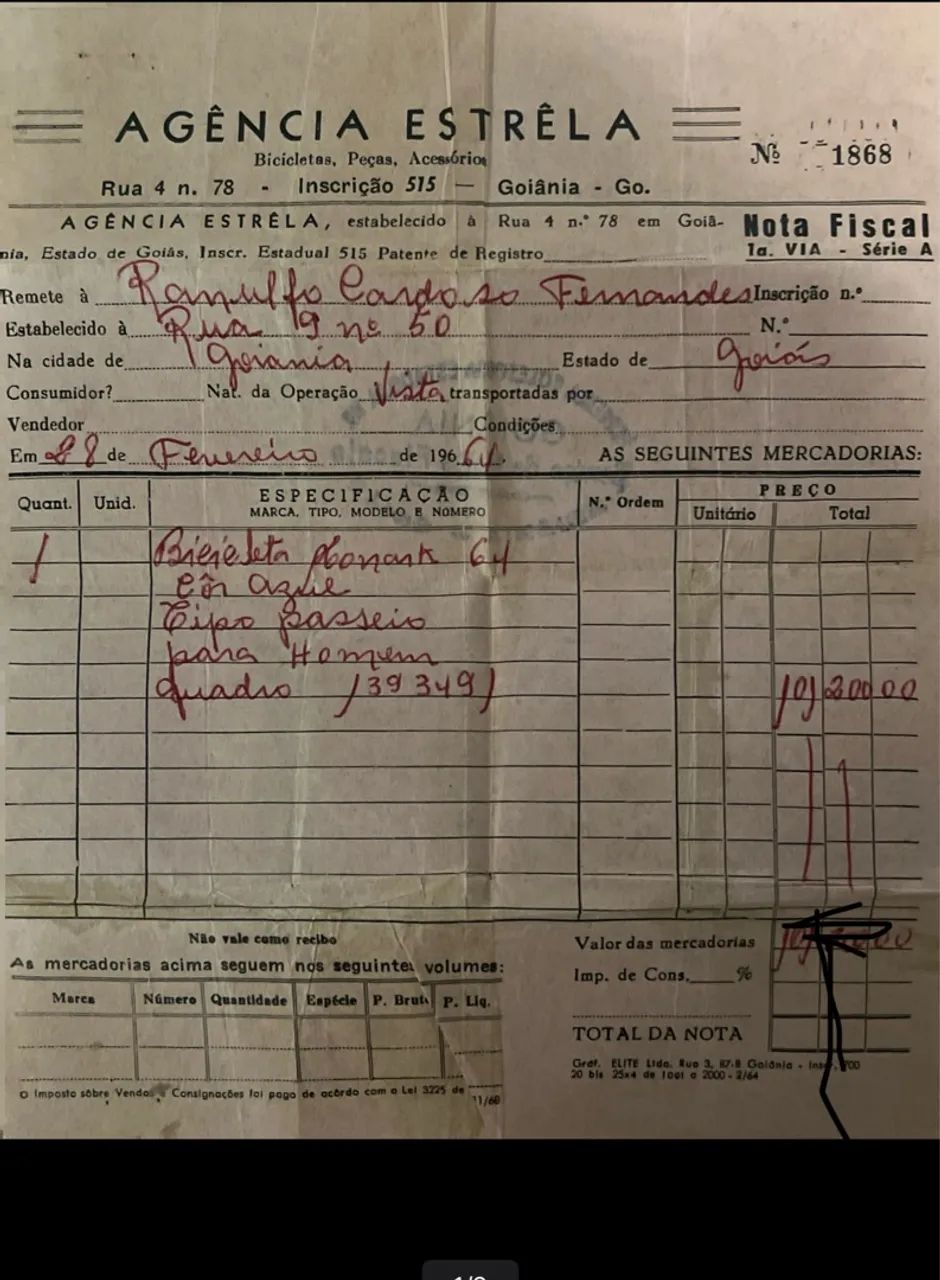 AGÊNCIA ESTRÊLA
Bicicletas, Peças, Acessórios
Nº 1868
Rua 4 n. 78 - Inscrição 515 — Goiânia - Go.
AGÊNCIA ESTRÊLA, estabelecido à Rua 4 n.º 78 em Goiâ-
nia, Estado de Goiás, Inscr. Estadual 515 Patente de Registro
Nota Fiscal
1a. VIA - Série A
Remete à Ranulfo Cardoso Fernandes Inscrição n.º
Estabelecido à Rua 19 nº 50 N.º
Na cidade de Goiania, Estado de Goiás
Consumidor? Nat. da Operação Vista transportadas por
Vendedor Condições
Em 28 de Fevereiro de 1964. AS SEGUINTES MERCADORIAS:
Quant. Unid. ESPECIFICAÇÃO N.º Ordem PREÇO
MARCA, TIPO, MODELO E NÚMERO Unitário Total
1 Bicicleta Monark 64
Côr Azul
Tipo passeio
para Homem
quadro 139349
Não vale como recibo
Valor das mercadorias
As mercadorias acima seguem nos seguintes volumes:
Imp. de Cons. %
Marca Número Quantidade Espécie P. Bruto P. Liq.
TOTAL DA NOTA
Gráf. ELITE Ltda. Rua 3, 87-B Goiânia - Inscr. 700
20 bls 25x4 de 1001 a 2000 - 2/64
O Imposto sôbre Vendas e Consignações foi pago de acôrdo com a Lei 3225 de
11/60